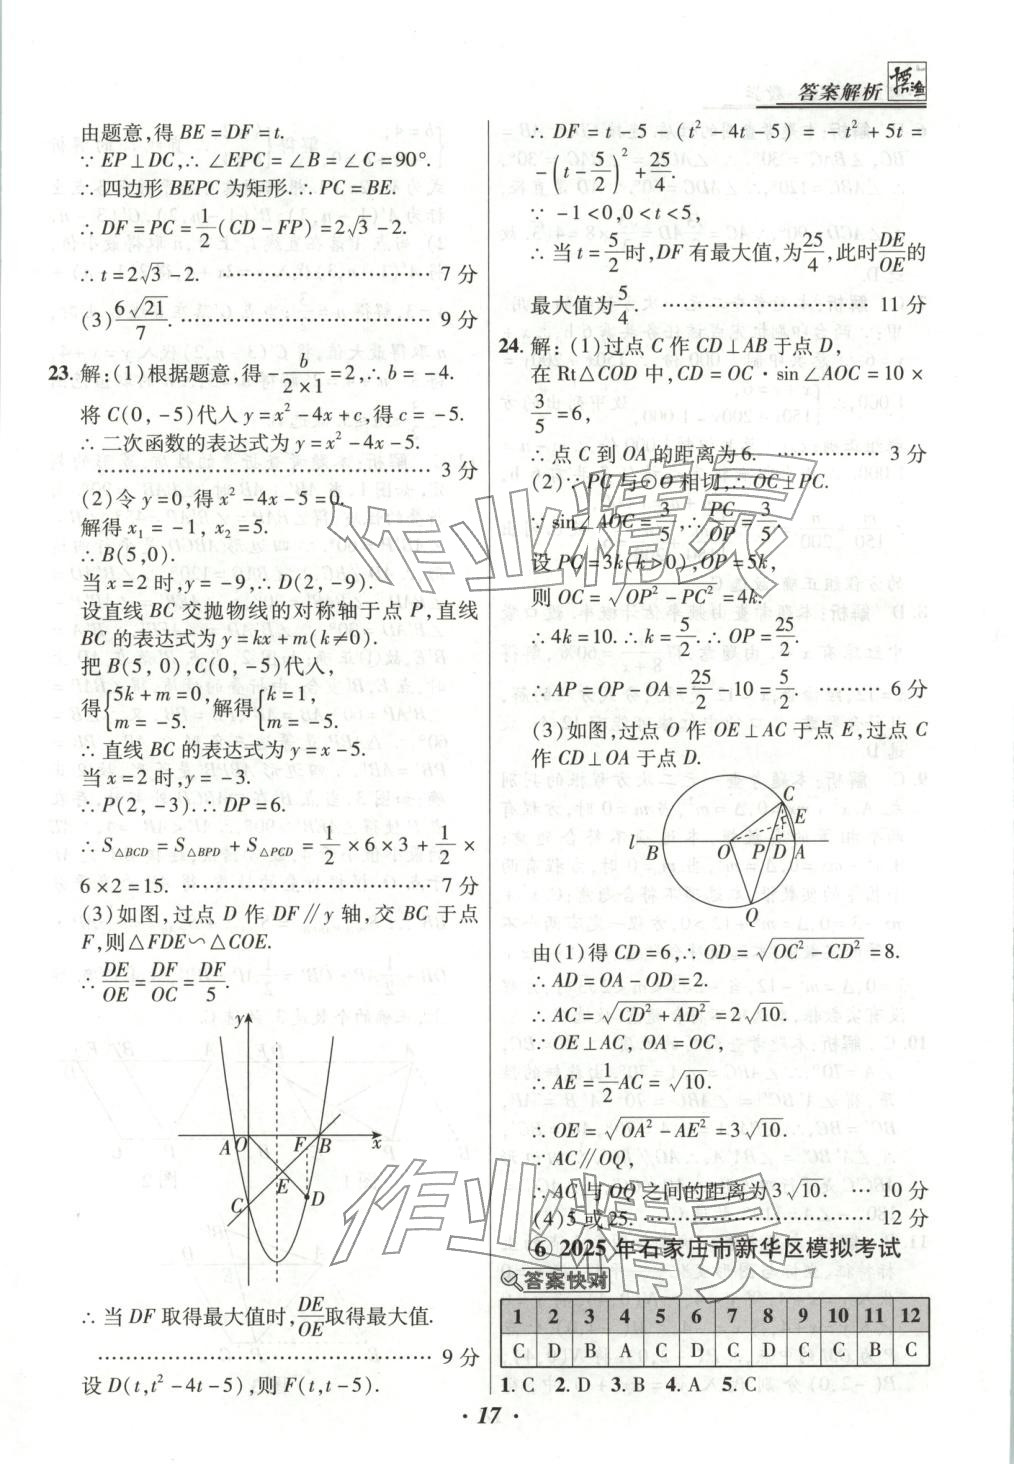 答案解析
由题意，得 BE=DF=t.
∵EP⊥DC，∴∠EPC=∠B=∠C=90°.
∴四边形 BEPC 为矩形.∴PC=BE.
∴DF=PC=1/2(CD-FP)=2√3-2.
∴t=2√3-2. ………………… 7 分
(3) 6√21/7. ………………… 9 分
23.解：(1)根据题意，得 -b/(2×1)=2，∴b=-4.
将 C(0，-5)代入 y=x²-4x+c，得 c=-5.
∴二次函数的表达式为 y=x²-4x-5.
………………… 3 分
(2)令 y=0，得 x²-4x-5=0.
解得 x₁=-1，x₂=5.
∴B(5,0).
当 x=2 时，y=-9，∴D(2，-9).
设直线 BC 交抛物线的对称轴于点 P，直线
BC 的表达式为 y=kx+m(k≠0).
把 B(5，0)，C(0，-5)代入，
得{5k+m=0, m=-5. 解得{k=1, m=-5.
∴直线 BC 的表达式为 y=x-5.
当 x=2 时，y=-3.
∴P(2，-3).∴DP=6.
∴S△BCD=S△BPD+S△PCD=1/2×6×3+1/2×
6×2=15. ………………… 7 分
(3)如图，过点 D 作 DF∥y 轴，交 BC 于点
F，则△FDE∽△COE.
∴DE/OE=DF/OC=DF/5.
y
A O F B x
E
C D
∴当 DF 取得最大值时，DE/OE取得最大值.
………………… 9 分
设 D(t,t²-4t-5)，则 F(t,t-5).
∴DF=t-5-(t²-4t-5)=-t²+5t=
-(t-5/2)²+25/4.
∵-1<0,0<t<5,
∴当 t=5/2时，DF 有最大值，为25/4，此时DE/OE的
最大值为5/4. ………………… 11 分
24.解：(1)过点 C 作 CD⊥AB 于点 D，
在 Rt△COD 中，CD=OC·sin∠AOC=10×
3/5=6，
∴点 C 到 OA 的距离为 6. ………… 3 分
(2)∵PC 与⊙O 相切，∴OC⊥PC.
∵sin∠AOC=3/5，∴PC/OP=3/5.
设 PC=3k(k>0)，OP=5k，
则 OC=√(OP²-PC²)=4k.
∴4k=10.∴k=5/2.∴OP=25/2.
∴AP=OP-OA=25/2-10=5/2. ……… 6 分
(3)如图，过点 O 作 OE⊥AC 于点 E，过点 C
作 CD⊥OA 于点 D.
C
E
l B O P D A
Q
由(1)得 CD=6，∴OD=√(OC²-CD²)=8.
∴AD=OA-OD=2.
∴AC=√(CD²+AD²)=2√10.
∵OE⊥AC，OA=OC，
∴AE=1/2AC=√10.
∴OE=√(OA²-AE²)=3√10.
∵AC∥OQ，
∴AC 与 OQ 之间的距离为 3√10. … 10 分
(4)5 或 25. ………………… 12 分
⑥ 2025 年石家庄市新华区模拟考试
答案快对
1 2 3 4 5 6 7 8 9 10 11 12
C D B A C D C D C A B C
1. C 2. D 3. B 4. A 5. C
· 17 ·
作业精灵
作业精灵